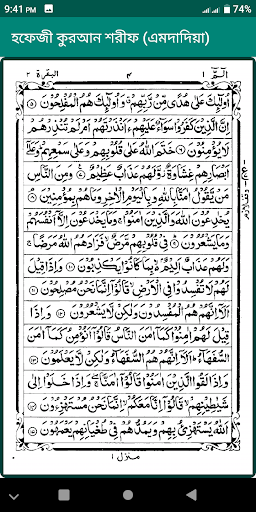 9:41 PM 74%
হফেজী কুরআন শরীফ (এমদাদিয়া)
البقرة ٢ ٤ الٓمّٓ ١
اُولٰٓئِكَ عَلٰى هُدًى مِّنْ رَّبِّهِمْ وَاُولٰٓئِكَ هُمُ الْمُفْلِحُوْنَ ۝٥
اِنَّ الَّذِيْنَ كَفَرُوْا سَوَآءٌ عَلَيْهِمْ ءَاَنْذَرْتَهُمْ اَمْ لَمْ تُنْذِرْهُمْ
لَا يُؤْمِنُوْنَ ۝٦ خَتَمَ اللّٰهُ عَلٰى قُلُوْبِهِمْ وَعَلٰى سَمْعِهِمْ وَعَلٰٓى
اَبْصَارِهِمْ غِشَاوَةٌ وَّلَهُمْ عَذَابٌ عَظِيْمٌ ۝٧ وَمِنَ النَّاسِ
مَنْ يَّقُوْلُ اٰمَنَّا بِاللّٰهِ وَبِالْيَوْمِ الْاٰخِرِ وَمَا هُمْ بِمُؤْمِنِيْنَ ۝٨
يُخٰدِعُوْنَ اللّٰهَ وَالَّذِيْنَ اٰمَنُوْا وَمَا يَخْدَعُوْنَ اِلَّآ اَنْفُسَهُمْ
وَمَا يَشْعُرُوْنَ ۝٩ فِيْ قُلُوْبِهِمْ مَّرَضٌ فَزَادَهُمُ اللّٰهُ مَرَضًا
وَلَهُمْ عَذَابٌ اَلِيْمٌ بِمَا كَانُوْا يَكْذِبُوْنَ ۝١٠ وَاِذَا قِيْلَ
لَهُمْ لَا تُفْسِدُوْا فِي الْاَرْضِ قَالُوْٓا اِنَّمَا نَحْنُ مُصْلِحُوْنَ ۝١١
اَلَآ اِنَّهُمْ هُمُ الْمُفْسِدُوْنَ وَلٰكِنْ لَّا يَشْعُرُوْنَ ۝١٢ وَاِذَا
قِيْلَ لَهُمْ اٰمِنُوْا كَمَآ اٰمَنَ النَّاسُ قَالُوْٓا اَنُؤْمِنُ كَمَآ اٰمَنَ
السُّفَهَآءُ اَلَآ اِنَّهُمْ هُمُ السُّفَهَآءُ وَلٰكِنْ لَّا يَعْلَمُوْنَ ۝١٣
وَاِذَا لَقُوا الَّذِيْنَ اٰمَنُوْا قَالُوْٓا اٰمَنَّا وَاِذَا خَلَوْا اِلٰى
شَيٰطِيْنِهِمْ قَالُوْٓا اِنَّا مَعَكُمْ اِنَّمَا نَحْنُ مُسْتَهْزِءُوْنَ ۝١٤
اَللّٰهُ يَسْتَهْزِئُ بِهِمْ وَيَمُدُّهُمْ فِيْ طُغْيَانِهِمْ يَعْمَهُوْنَ ۝١٥
منزل ١